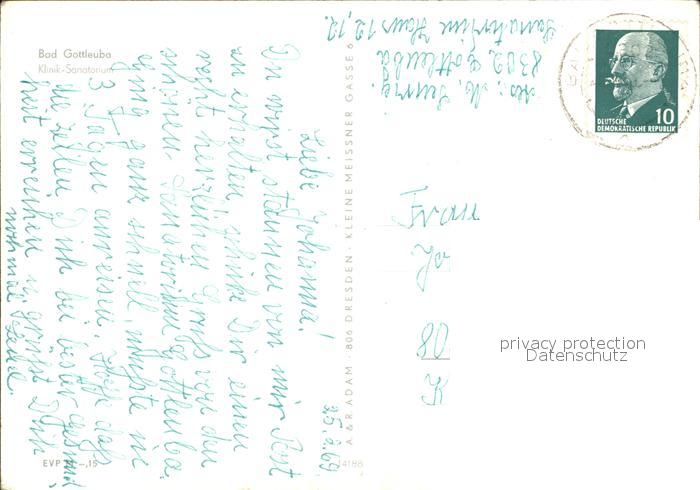 Bad Gottleuba
Klinik-Sanatorium
25.2.69
Liebe Johanna!
Du wirst staunen von mir Post
zu erhalten, schicke Dir einen
recht herzlichen Gruß von den
schönen Sanatorium Gottleuba.
ging ganz schnell, mußte in
3 Tagen anreisen. Hoffe daß
die Zeilen Dich bei bester Gesund
heit erreichen u. grüßt Dich
nochmal
EVP –,15
A & R ADAM · 806 DRESDEN · KLEINE MEISSNER GASSE 6
Abs: M.
8302 Gottleuba
Sanatorium Haus 12, 12.
DEUTSCHE
DEMOKRATISCHE REPUBLIK
10
Frau
Jo
80
K
privacy protection
Datenschutz